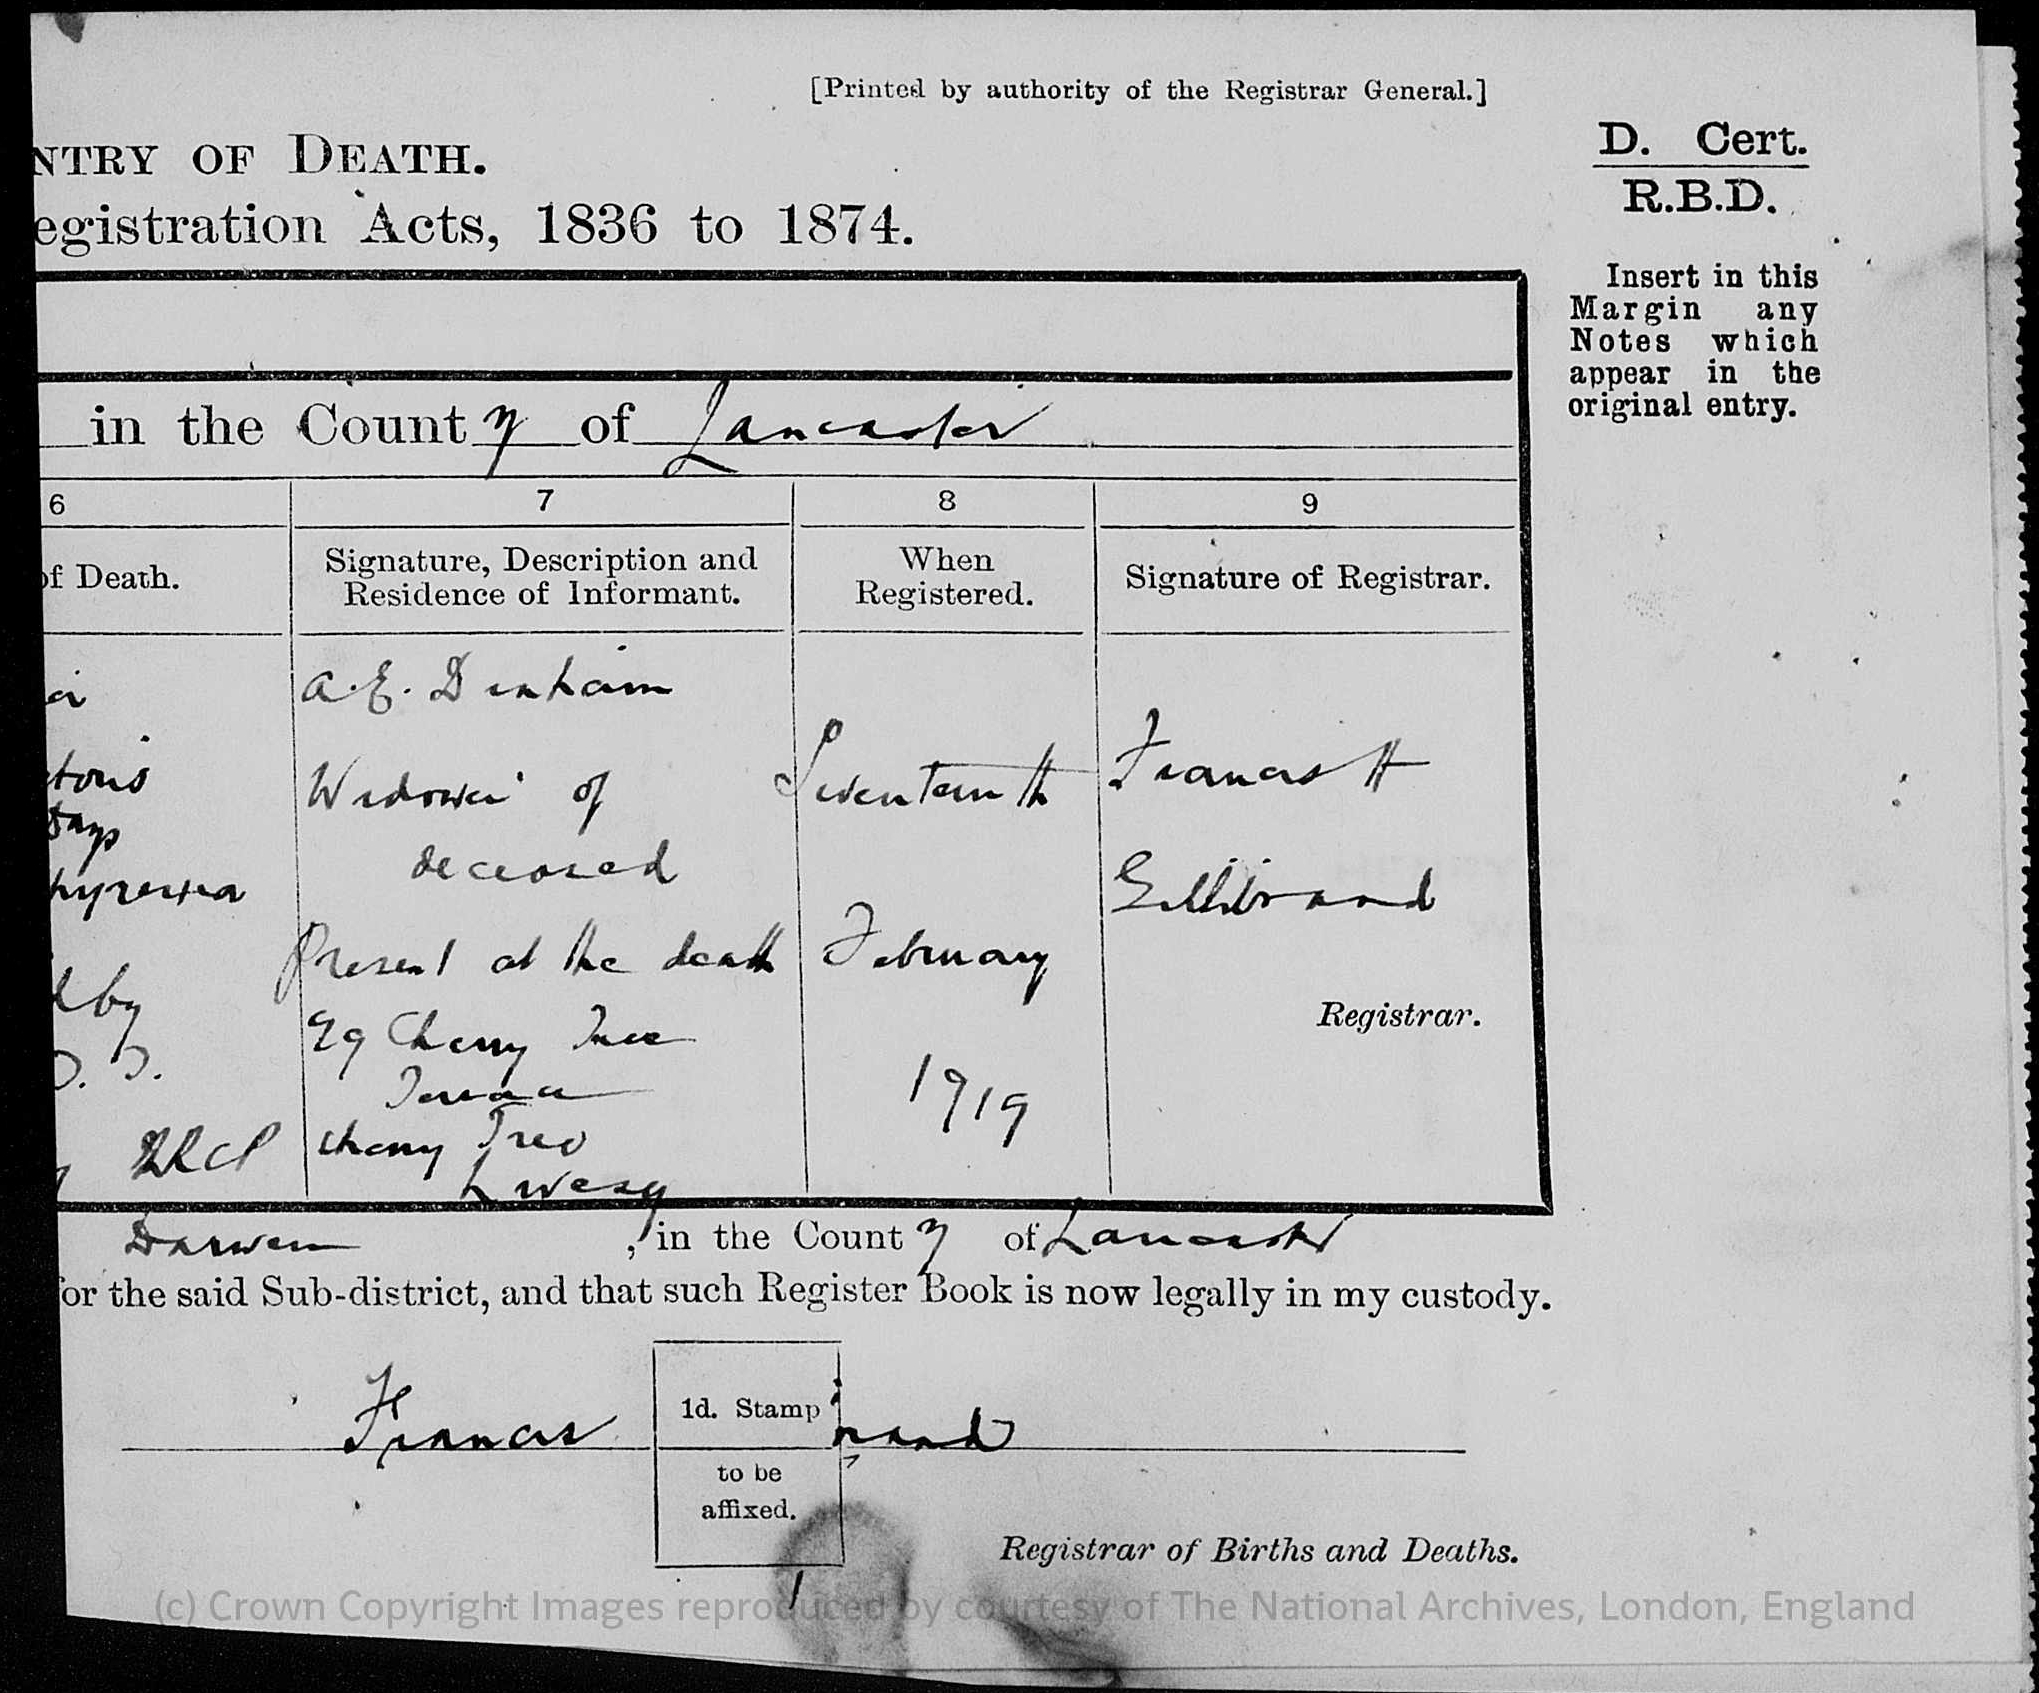 [Printed by authority of the Registrar General.]
D. Cert.
R.B.D.
NTRY OF DEATH.
egistration Acts, 1836 to 1874.
Insert in this
Margin any
Notes which
appear in the
original entry.
in the County of Lancaster
6 7 8 9
of Death.
Signature, Description and
Residence of Informant.
When
Registered.
Signature of Registrar.
pyrexia
by
LRCP
A.E. Denham
Widower of
deceased
Present at the death
29 Cherry Tree
Terrace
Cherry Tree
Livesey
Seventeenth
February
1919
Francis H
Gillibrand
Registrar.
Darwen, in the County of Lancaster
for the said Sub-district, and that such Register Book is now legally in my custody.
Francis brand
1d. Stamp
to be
affixed.
Registrar of Births and Deaths.
(c) Crown Copyright Images reproduced by courtesy of The National Archives, London, England